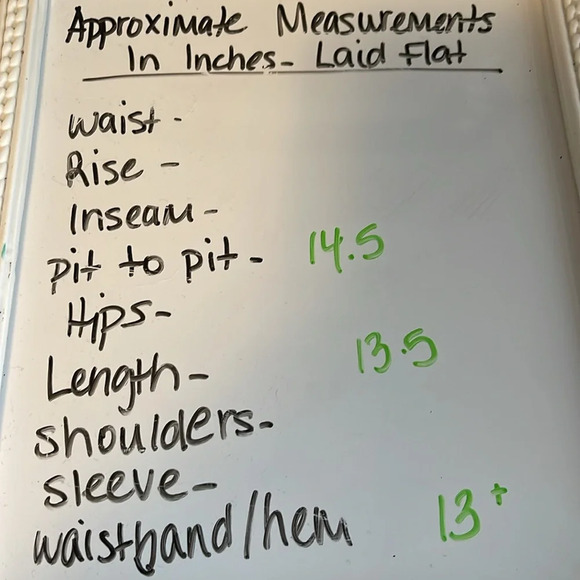 Approximate Measurements
In Inches- Laid Flat
waist -
Rise -
Inseam -
pit to pit - 14.5
Hips-
Length - 13.5
shoulders-
sleeve-
waistband/hem 13+